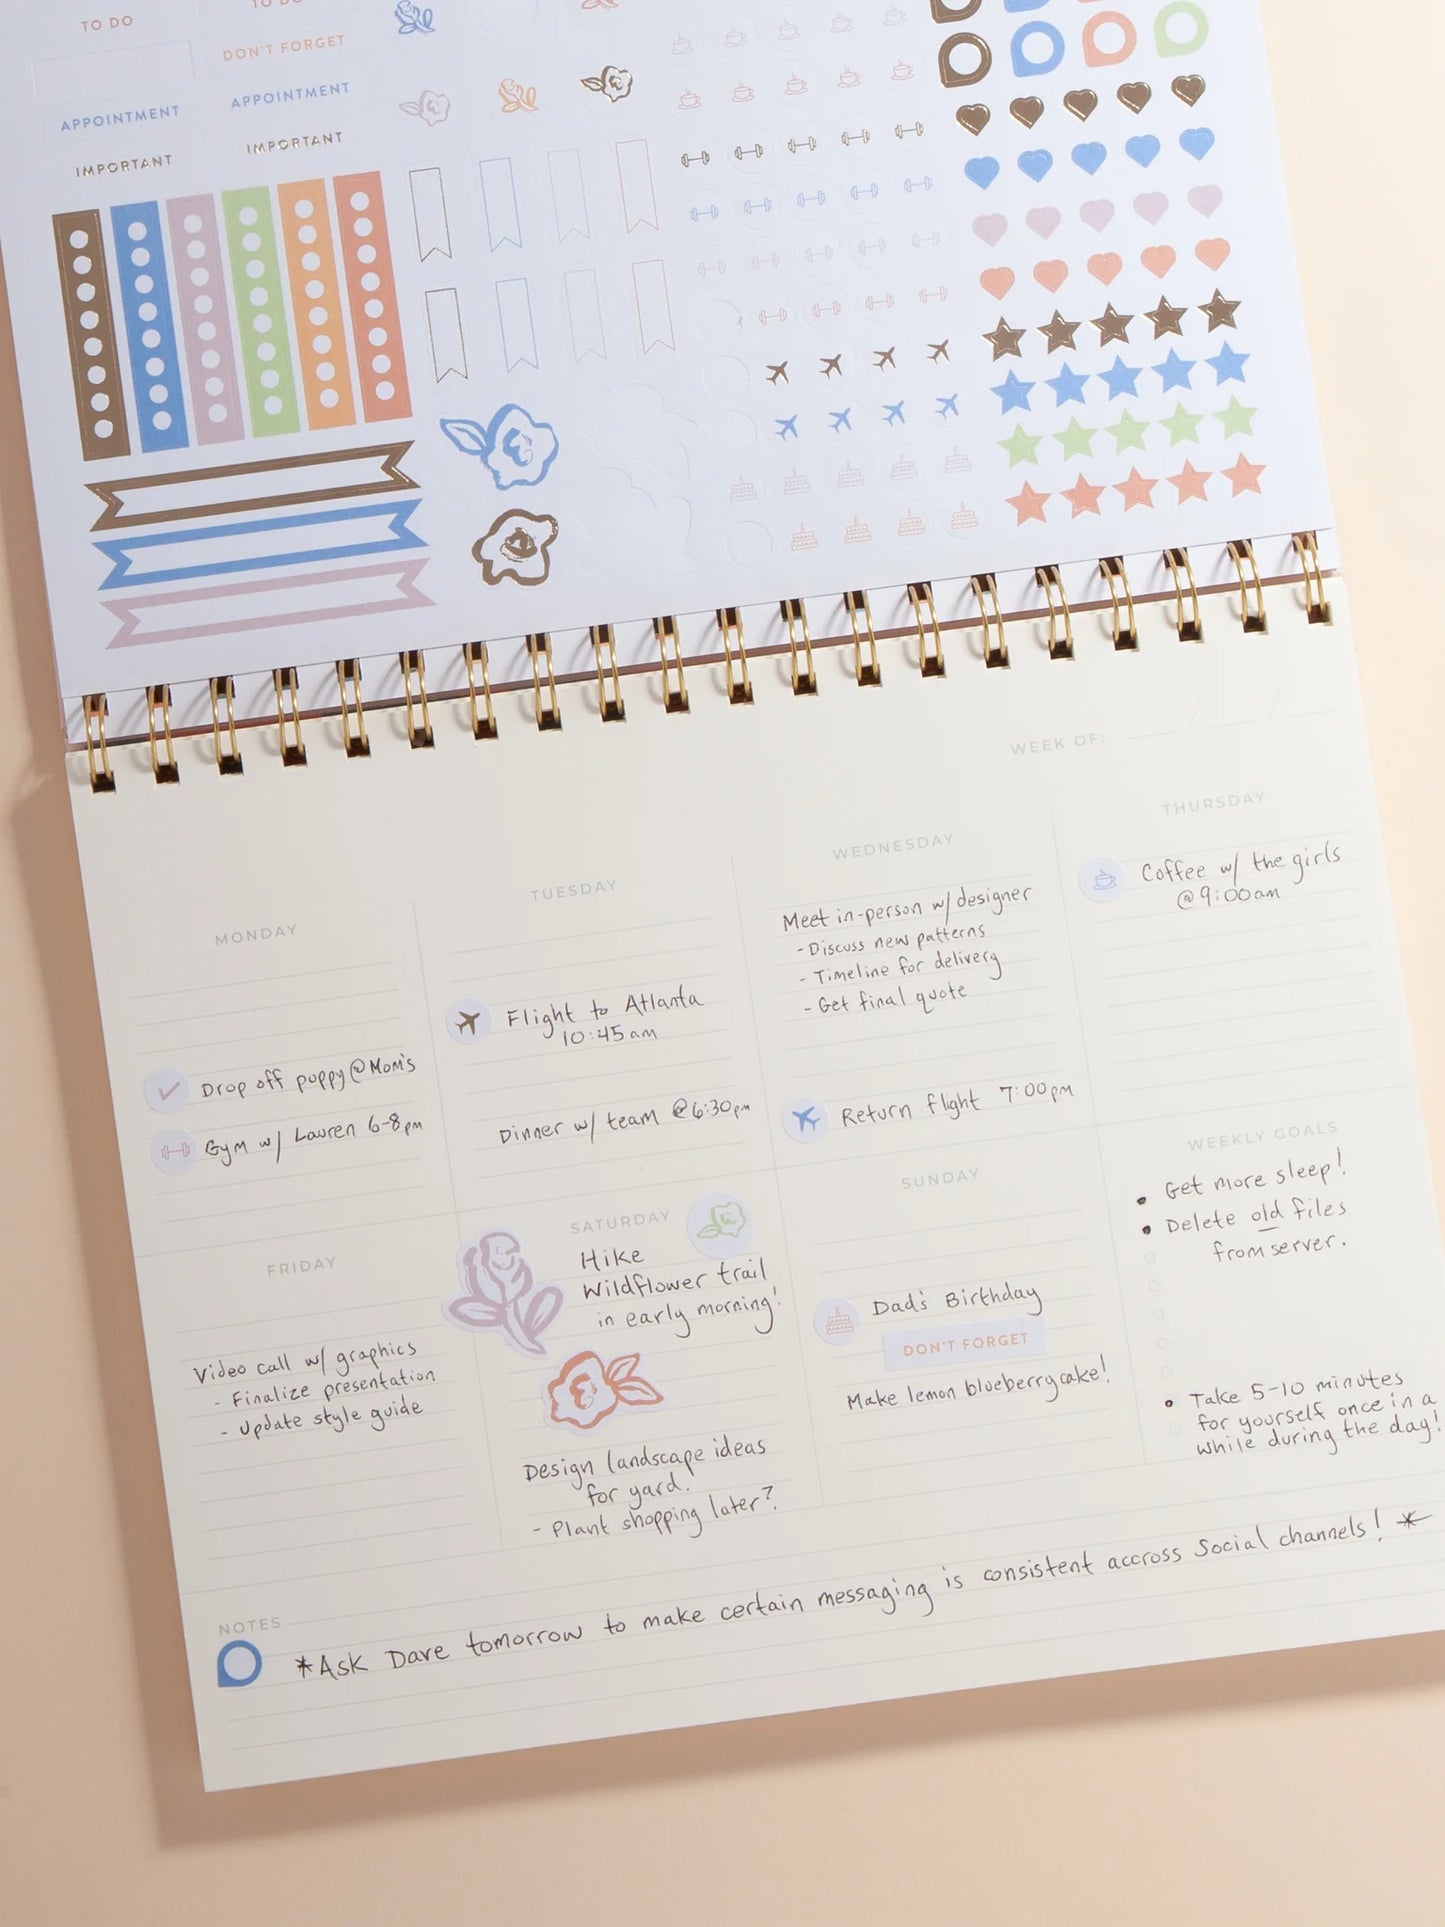 TO DO
DON'T FORGET
APPOINTMENT
APPOINTMENT
IMPORTANT
IMPORTANT
WEEK OF:
MONDAY
Drop off puppy @ Mom's
Gym w/ Lauren 6-8pm
TUESDAY
Flight to Atlanta
10:45 am
Dinner w/ team @ 6:30pm
WEDNESDAY
Meet in-person w/ designer
- Discuss new patterns
- Timeline for delivery
- Get final quote
Return flight 7:00pm
THURSDAY
Coffee w/ the girls
@ 9:00am
FRIDAY
Video call w/ graphics
- Finalize presentation
- Update style guide
SATURDAY
Hike
Wildflower trail
in early morning!
Design landscape ideas
for yard.
- Plant shopping later?
SUNDAY
Dad's Birthday
DON'T FORGET
Make lemon blueberry cake!
WEEKLY GOALS
Get more sleep!
Delete old files
from server.
Take 5-10 minutes
for yourself once in a
while during the day!
NOTES
*Ask Dave tomorrow to make certain messaging is consistent accross Social channels! *